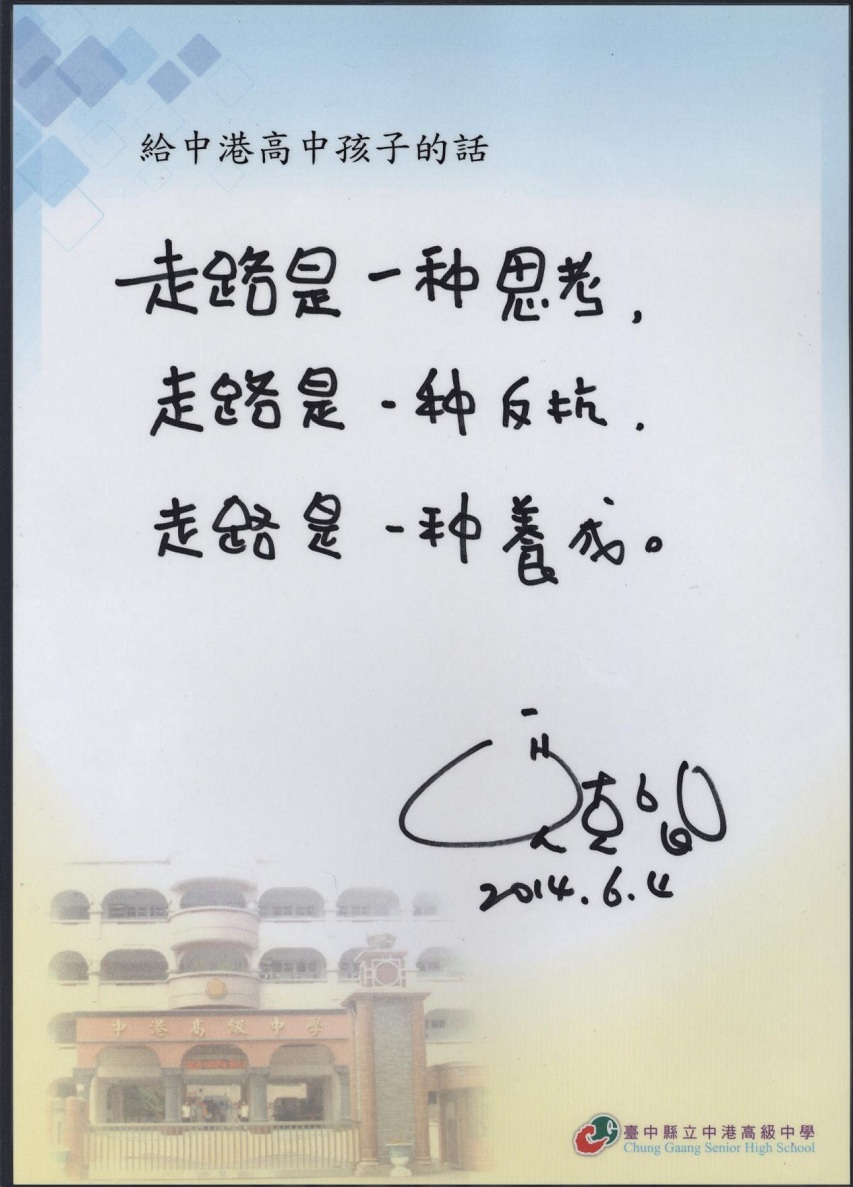 給中港高中孩子的話
走路是一种思考,
走路是一种反抗,
走路是一种養成。
2014.6.4
中港高級中學
臺中縣立中港高級中學
Chung Gaang Senior High School